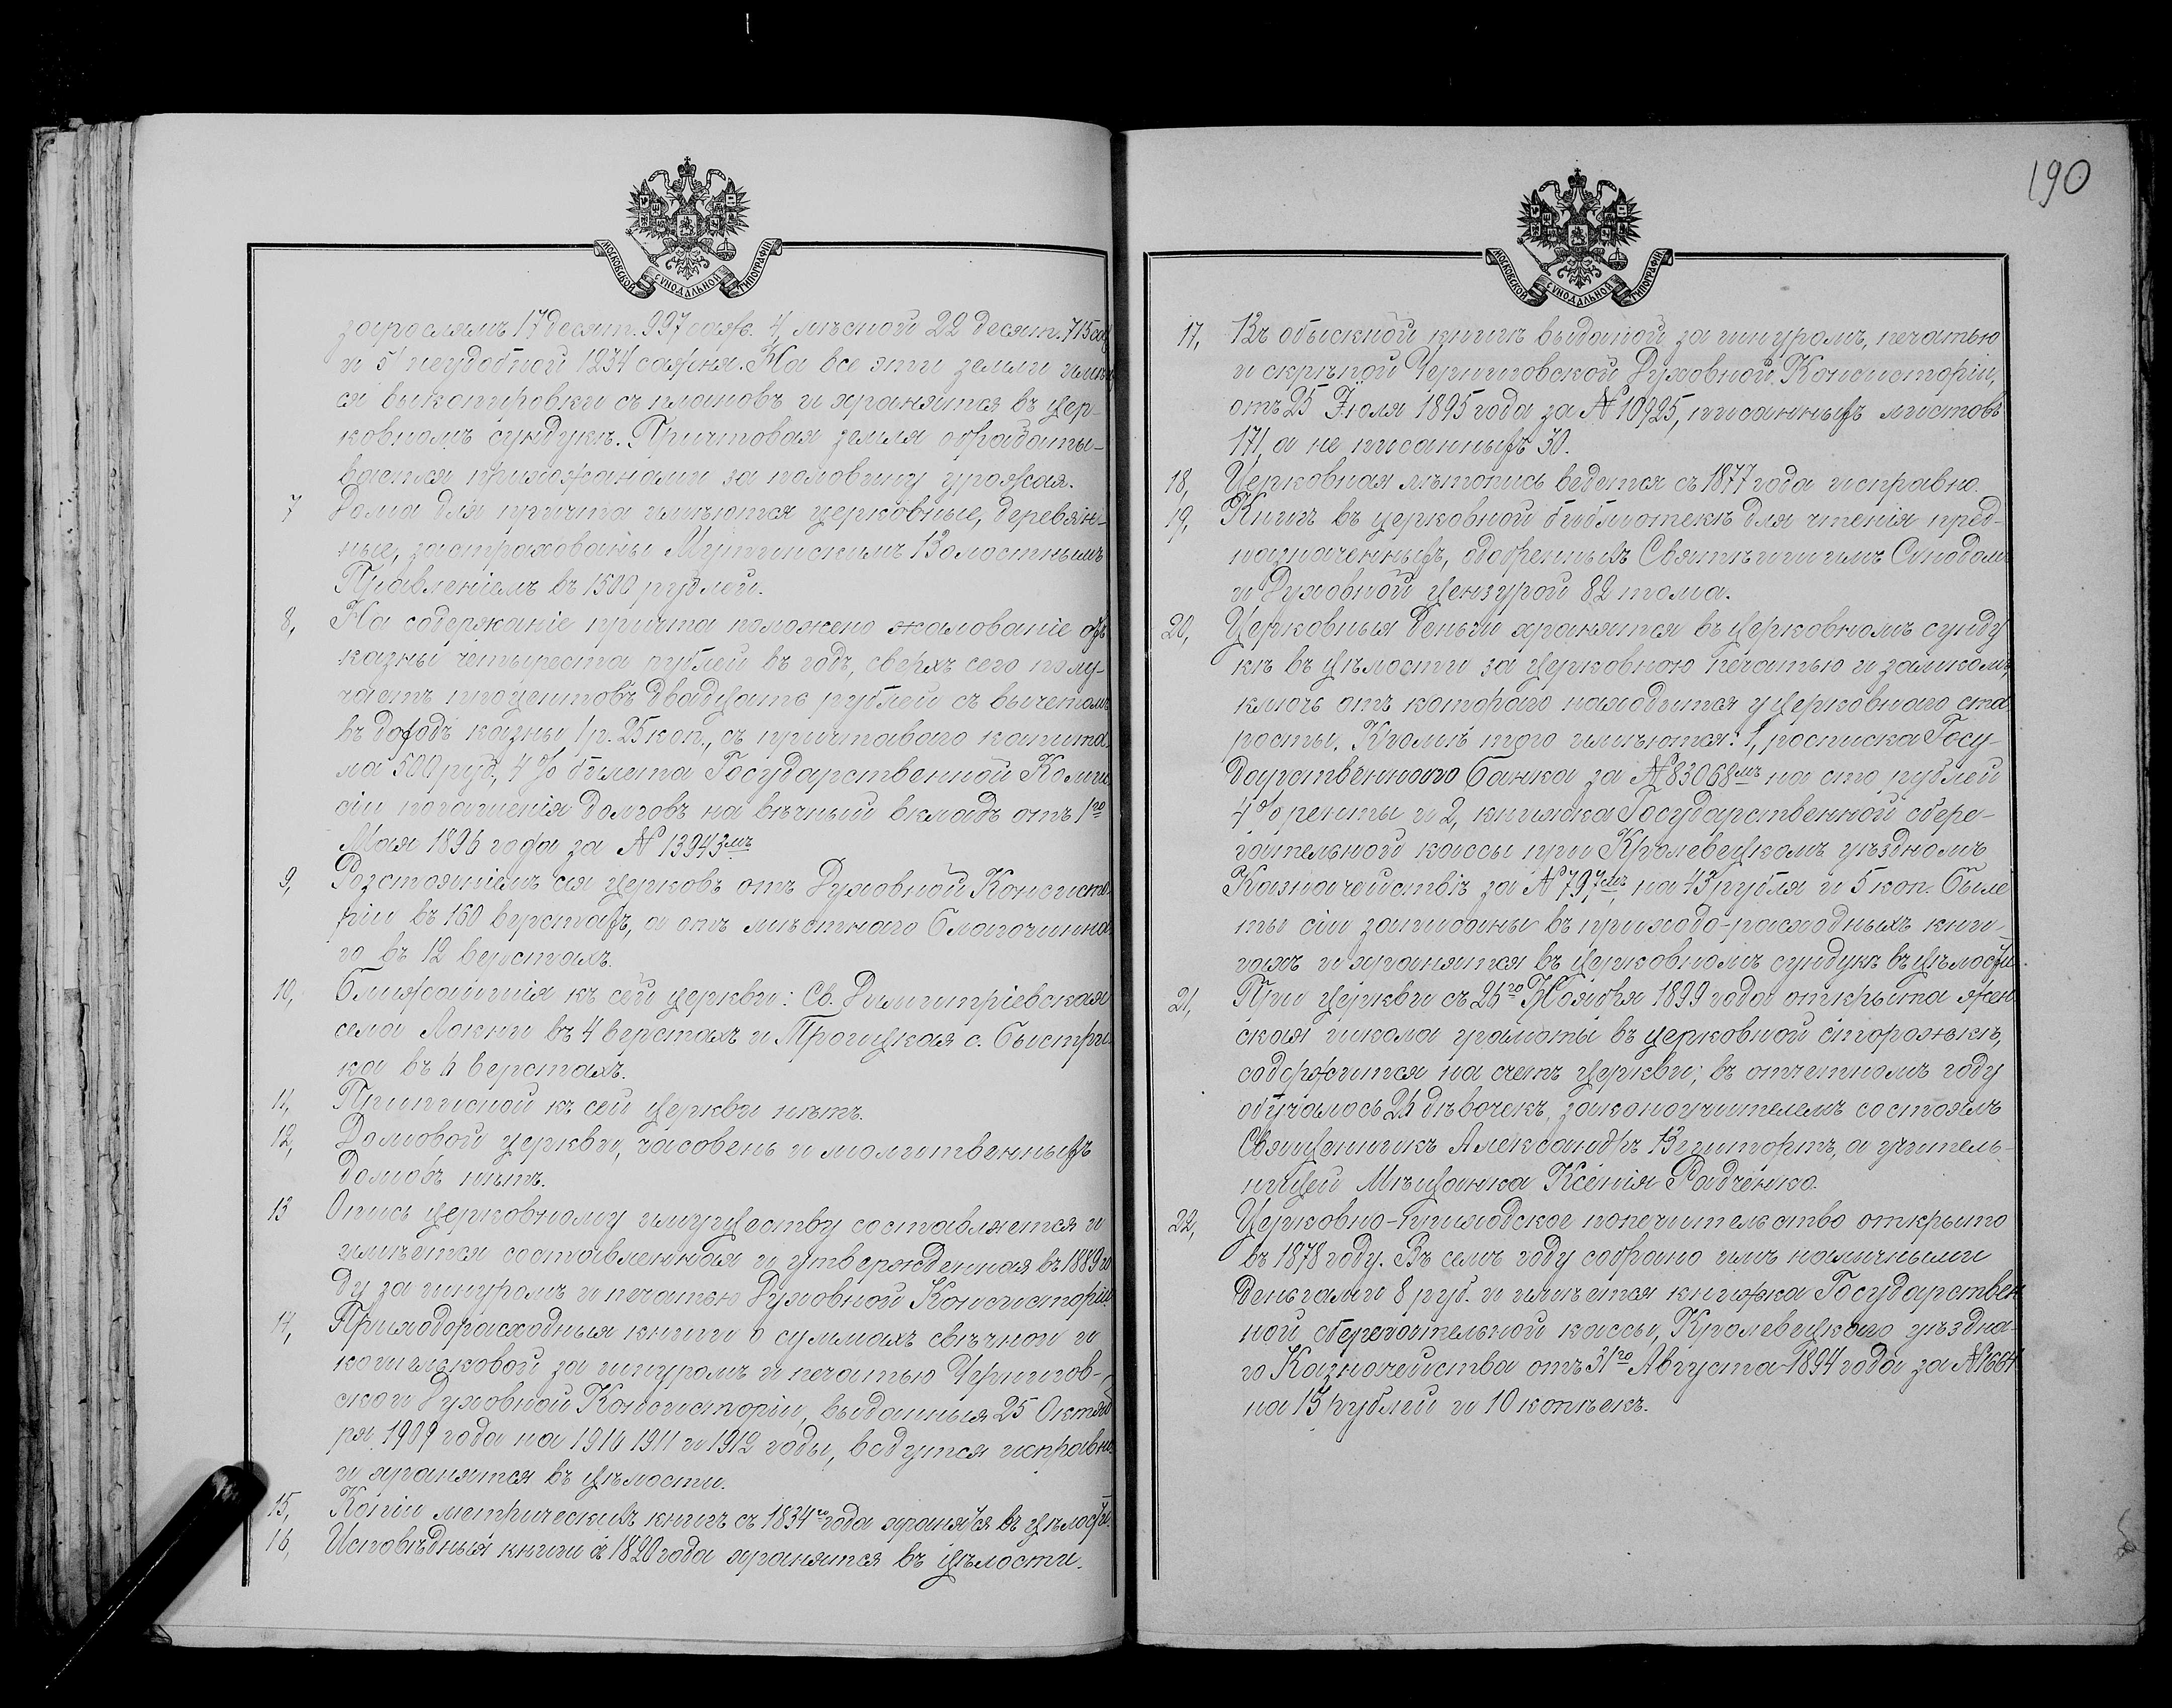 190
МОСКОВСКОЙ СѴНОДАЛЬНОЙ ТИПОГРАФІИ
зарослямъ 17 десят. 997 саж. 4, лѣсной 22 десят. 715 саж
и 5 неудобной 1234 сажня. На все эти земли имѣю
ся выкопировки съ плановъ и хранятся въ цер-
ковномъ сундукѣ. Причтовая земля обрабаты-
вается прихожанами за половину урожая.
7 Дома для причта имѣются церковные, деревян-
ные, застрахованы Волостнымъ
Правленіемъ въ 1500 рублей.
8, На содержаніе причта положено жалованіе отъ
казны четыреста рублей въ годъ, сверхъ сего полу-
чаетъ процентовъ двадцать рублей съ вычетомъ
въ доходъ казны 1 р. 25 коп., съ причтаваго капита
ла 500 руб., 4% билета Государственной Комми
сіи погашенія долговъ на вѣчный вкладъ отъ 1го
Мая 1896 года за № 13943мъ
9, Разстояніемъ сія церковь отъ Духовной Консисто
ріи въ 160 верстахъ, а отъ мѣстнаго Благочинна
го въ 12 верстахъ.
10, Ближайшія къ сей церкви: Св. Димитріевская
села Локни въ 4 верстахъ и Троицкая с. Быстри
ка въ 6 верстахъ.
11, Приписной къ сей церкви нѣтъ.
12, Домовой церкви, часовень и молитвенныхъ
домовъ нѣтъ.
13 Опись церковному имуществу составляется и
имѣется составленная и утвержденная въ 1889 го
ду за шнуромъ и печатью Духовной Консисторіи.
14, Приходорасходныя книги о суммахъ свѣчной и
кошельковой за шнуромъ и печатью Чернигов-
ской Духовной Консисторіи, выданныя 25 Октяб
ря 1909 года на 1910 1911 и 1912 годы, ведутся исправно
и хранятся въ цѣлости.
15, Копіи метрическихъ книгъ съ 1834го года хранятся въ цѣлости.
16, Исповѣдныя книги съ 1820 года хранятся въ цѣлости.
МОСКОВСКОЙ СѴНОДАЛЬНОЙ ТИПОГРАФІИ
17, Въ обыскной книгѣ выданой за шнуромъ, печатью
и скрѣпой Черниговской Духовной Консисторіи,
отъ 25 Іюля 1895 года за № 10925, писанныхъ листовъ
171, а не писанныхъ 30.
18, Церковная лѣтопись ведется съ 1877 года исправно.
19, Книгъ въ церковной библіотекѣ для чтенія пред-
назначенныхъ, одобренныхъ Святѣйшимъ Синодомъ
и Духовной цензурой 82 тома.
20, Церковныя деньги хранятся въ церковномъ сунду
кѣ въ цѣлости за церковною печатью и замкомъ,
ключъ отъ котораго находится у церковнаго ста
росты. Кромѣ того имѣются: 1, росписка Госу-
дарственнаго банка за № 83068мъ на сто рублей
4% ренты и 2, книжка Государственной сбере-
гательной кассы при Кролевецкомъ уѣздномъ
Казначействѣ за № 797мъ, на 43 рубля и 5 коп. Биле
ты сіи записаны въ приходо-расходныхъ кни-
гахъ и хранятся въ церковномъ сундукѣ въ цѣлости
21, При церкви съ 26го Ноября 1899 года открыта жен
ская школа грамоты въ церковной сторожкѣ,
содержится на счетъ церкви; въ отчетномъ году
обучалось 26 дѣвочекъ, законоучителемъ состоялъ
Священникъ Александръ а учитель-
ницей Мѣщанка Ксенія Радченко.
22, Церковно-приходское попечительство открыто
въ 1878 году. Въ семъ году собрано имъ наличными
деньгами 8 руб. и имѣется книжка Государствен
ной сберегательной кассы, Кролевецкаго уѣздна-
го Казначейства отъ 31го Августа 1894 года за № 1664
на 15 рублей и 10 копѣекъ.